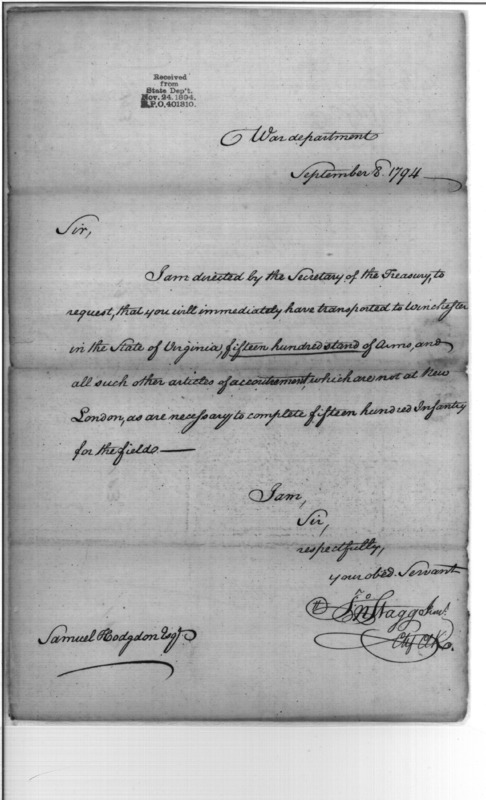 Received
from
State Dep't.
Nov. 24. 1894.
R.P.O, 401310.
War department
September 8. 1794
Sir,
I am directed by the Secretary of the Treasury, to
request, that you will immediately have transported to Winchester
in the State of Virginia, fifteen hundred stand of Arms, and
all such other articles of accoutrement, which are not at New
London, as are necessary to complete fifteen hundred Infantry
for the field. —
I am,
Sir,
respectfully,
your obed. Servant
Jno Stagg Junr.
Chf Clk.
Samuel Hodgdon Esqr.